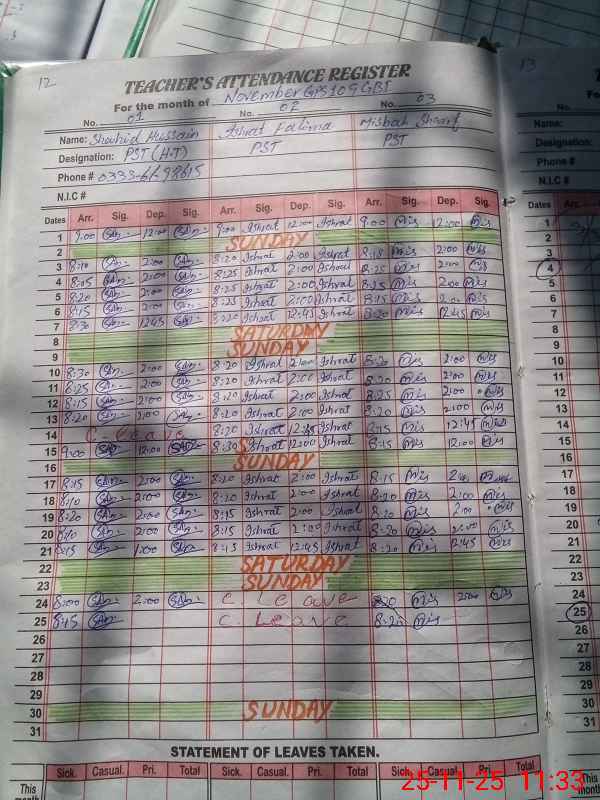 12
13
TEACHER'S ATTENDANCE REGISTER
For the month of November GPS 109 GBI
No. 01 No. 02 No. 03
Name: Shahid Hussain Ishrat Fatima Misbah Sharif
Designation: PST (H.T) PST PST
Phone #
N.I.C #
Dates Arr. Sig. Dep. Sig. Arr. Sig. Dep. Sig. Arr. Sig. Dep. Sig.
1 9:00 12:00 9:00 Ishrat 12:00 Ishrat 9:00 Mis 12:00 Mis
2 SUNDAY
3 8:10 2:00 8:20 Ishrat 2:00 Ishrat 8:15 Mis 2:00 Mis
4 8:15 2:00 8:25 Ishrat 2:00 Ishrat 8:25 Mis 2:00 Mis
5 8:20 2:00 8:25 Ishrat 2:00 Ishrat 8:25 Mis 2:00 Mis
6 8:15 2:00 8:25 Ishrat 2:00 Ishrat 8:15 Mis 2:00 Mis
7 8:30 12:45 8:20 Ishrat 12:45 Ishrat 8:20 Mis 12:45 Mis
8 SATURDAY
9 SUNDAY
10 8:30 2:00 8:20 Ishrat 2:00 Ishrat 8:20 Mis 2:00 Mis
11 8:25 2:00 8:20 Ishrat 2:00 Ishrat 8:20 Mis 2:00 Mis
12 8:15 2:00 8:20 Ishrat 2:00 Ishrat 8:25 Mis 2:00 Mis
13 8:20 2:00 8:20 Ishrat 2:00 Ishrat 8:20 Mis 2:00 Mis
14 C. leave 8:20 Ishrat 12:45 Ishrat 8:15 Mis 12:45 Mis
15 9:00 12:00 8:30 Ishrat 12:00 Ishrat 8:15 Mis 12:00 Mis
16 SUNDAY
17 8:15 2:00 8:20 Ishrat 2:00 Ishrat 8:15 Mis Mis
18 8:10 2:00 8:20 Ishrat 2:00 Ishrat 8:20 Mis 2:00 Mis
19 8:20 2:00 8:15 Ishrat 2:00 Ishrat 8:20 Mis 2:00 Mis
20 8:10 2:00 8:15 Ishrat 2:00 Ishrat 8:20 Mis 2:00 Mis
21 8:15 1:00 8:15 Ishrat 12:45 Ishrat 8:20 Mis 12:45 Mis
22 SATURDAY
23 SUNDAY
24 8:00 2:00 C. Leave 8:20 Mis Mis
25 8:45 C. Leave 8:20 Mis
26
27
28
29
30 SUNDAY
31
STATEMENT OF LEAVES TAKEN.
This month Sick. Casual. Pri. Total Sick. Casual. Pri. Total Sick. Casual. Pri. Total
25-11-25 11:33
For
Name:
Designation:
Phone #
N.I.C #
Dates
1
2
3
4
5
6
7
8
9
10
11
12
13
14
15
16
17
18
19
20
21
22
23
24
25
26
27
28
29
30
31
This month